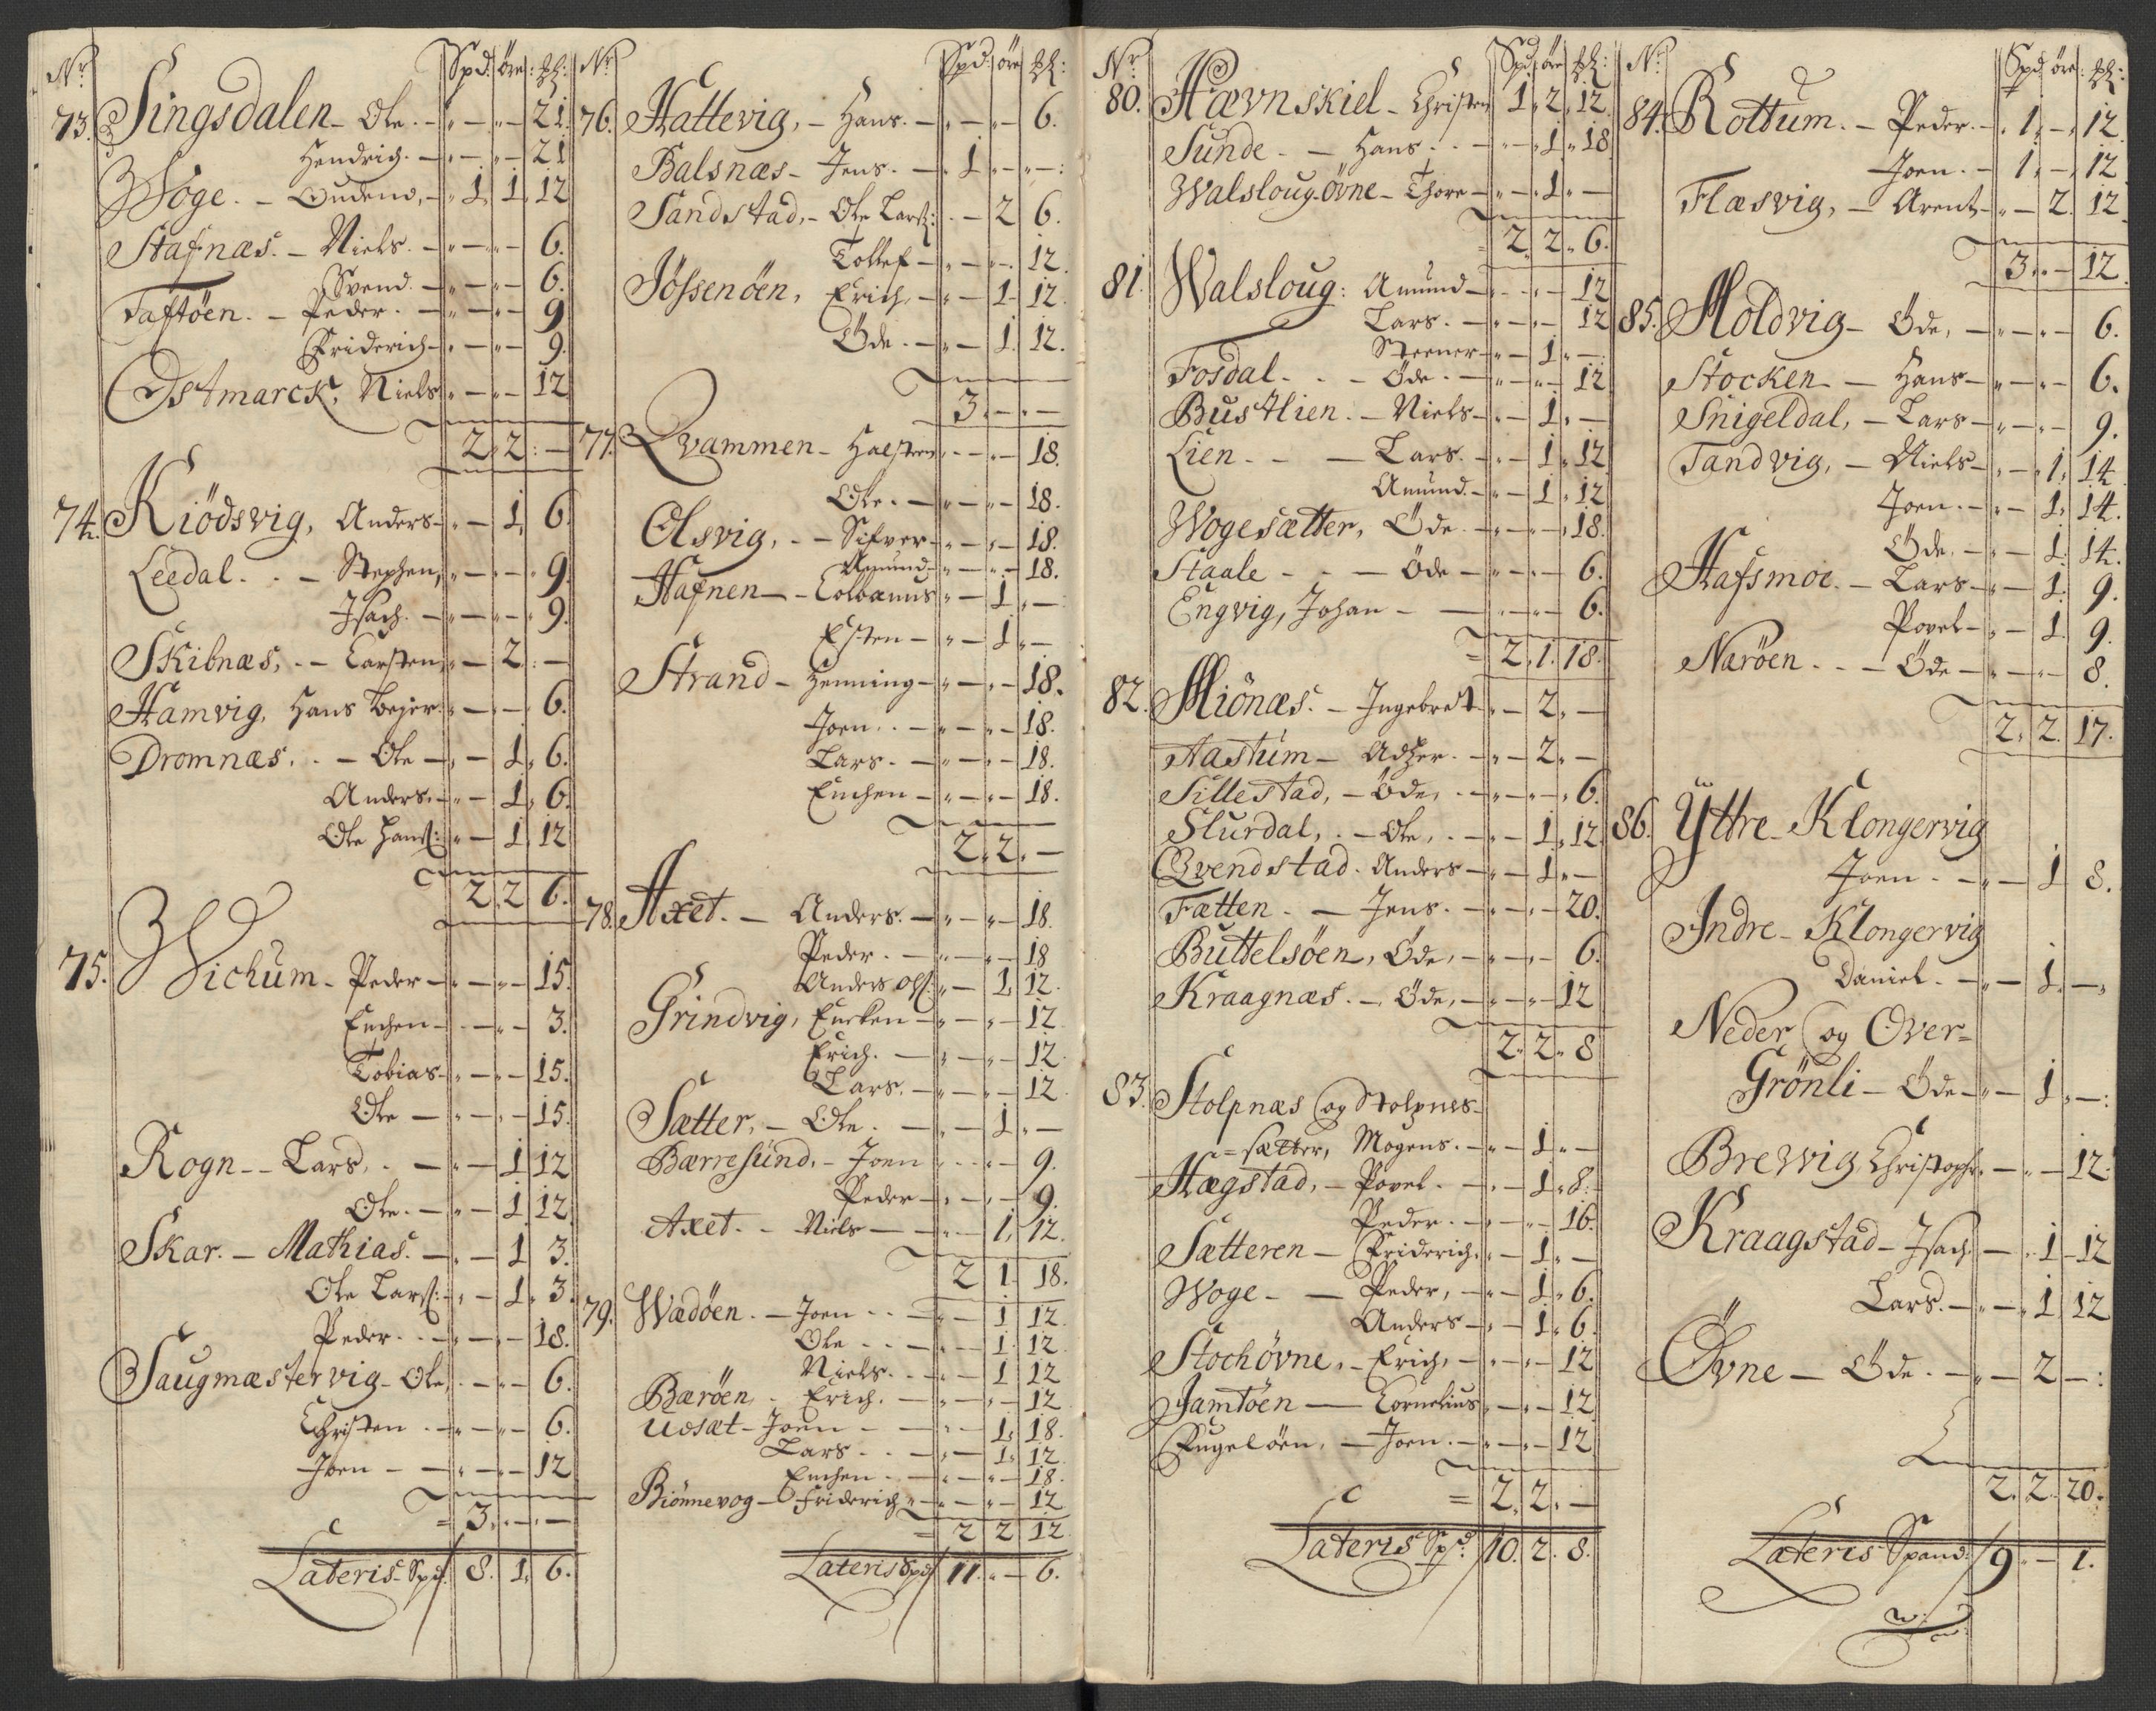 Nr Spd: öre: Mk:
73. Singsdalen - Ole. - „ - „ - 21.
Hendrich. - „ - „ - 21
Woge. - Gudend, - „ 1, 1, 12
Stafnæs. - Niels. - „ - „ - 6.
Svend. - „ - „ - 6.
Taftöen. - Peder. - „ - „ - 9
Friderich - „ - „ - 9.
Ostmarck, Niels „ - „ - 12
2, 2: -
74. Kiödsvig, Anders - „ - 1, 6.
Leedal. . - Stephen, „ - „ - 9.
Isach. - „ - „ - 9.
Skibnæs, . - Carsten, „ - 2: -
Hamvig, Hans Bejer. „ - „ - 6.
Dromnæs. . - Ole - „ - 1, 6.
Anders. - „ - 1, 6.
Ole Hanß: „ - 1, 12
2, 2 6.
75. Wichum - Peder - „ - „ - 15.
Enchen - „ - „ - 3.
Tobias - „ - „ - 15.
Ole - „ - „ - 15.
Rogn - - Lars, . - „ - 1, 12
Ole. - „ - 1, 12
Skar. - Mathias. - „ - 1 3.
Ole Larß: - „ - 1, 3.
Peder. . - „ - „ - 18.
Saugmæstervig - Ole, „ - „ - 6.
Christen . - „ - „ - 6.
Joen - - „ - „ - 12
= 3. „ - „ -
Lateris Spd/ 8. 1, 6.
Nr Spd: öre Mk:
76. Hattevig, - Hans. - „ - „ - 6.
Balsnæs - Jens. - „ 1 „ - „ - :
Sandstad, - Ole Larß: . - 2 6.
Tollef - „ - „ - 12.
Jössenöen, Erich, - „ - 1 12.
Öde. - „ - 1. 12.
3. - „ -
77. Qvammen - Halsten „ - „ - 18.
Ole. - „ - „ - 18.
Olsvig, . - Sifver - „ - „ - 18.
Amund - „ - „ - 18.
Hafnen - - Colbænus „ - 1 „ - :
Esten - „ - 1 „ -
Strand - Henning - „ - „ - 18.
Joen. . - „ - „ - 18.
Lars. - „ - „ - 18.
Enchen - „ - „ - 18.
2. 2. -
78. Axet. - Anders. - „ - „ - 18.
Peder. - „ - „ - 18
Anders Olß: „ - 1, 12.
Grindvig, Encken - „ - „ - 12
Erich. - „ - „ - 12.
Lars. - „ - „ - 12
Sætter, - Ole. - „ - 1 „ -
Bærresund, - Joen „ - „ - 9.
Peder - „ - „ - 9.
Axet. - Niels - „ - 1, 12.
2 1. 18.
79. Wadöen. - Joen - - „ - 1 12.
Ole - - „ - 1. 12
Niels. - „ - 1 12
Bæröen, - Erich. - „ - „ - 12
Udsæt - Joen - „ - 1, 18.
Lars - - „ - 1, 12.
Enchen - „ - „ - 18.
Biönnevog - Friderich „ - „ - 12
= 2 2 12.
Lateris Spd/ 11. „ - 6.
Nr Spd: öre Mk:
80. Hævnskiel - Christen 1, 2, 12.
Sunde. - Hans. . - „ - 1, 18
Walsloug-Övne - Thore - „ - 1 „ -
= 2, 2, 6.
81. Walsloug: Amund - „ - „ - 12
Lars. - „ - „ - 12
Steener - „ - 1 „ - :
Fosdal. . - Öde. - „ - „ - 12
BusHlien. - Niels - „ - 1, -
Lien. - - Lars. - „ - 1, 12
Amund. - „ - 1, 12
Wogesætter, Öde. - „ - „ - 18.
Staale - - Öde - „ - „ - 6.
Engvig, Johan - - „ - „ - 6.
= 2, 1. 18.
82. Miönæs. - Ingebret „ - 2, -
Aastum - Adzer. - „ - 2, -
Sillestad, - Öde, . - „ - „ - 6.
Slurdal, . - Ole, . - „ - 1, 12
Qvendstad. Anders - „ - 1, -
Fætten. - Jens. - „ - „ - 20.
Buttelsöen, Öde, - „ - „ - 6.
Kraagnæs. - Öde, - „ - „ - 12
2. 2. 8
83. Stolpnæs og Stolpnes-
= sætter, Mogens. - „ - 1 „ -
Hægstad, - Povel. - „ - 1, 8. -
Peder. - „ - „ - 16.
Sætteren - Friderich. „ - 1, -
Woge - - Peder, - „ - 1, 6.
Anders - „ - 1, 6.
Stochövne, - Erich, - „ - „ - 12
Jamtöen - Cornelius „ - „ - 12
Fugelöen, - Joen. - „ - „ - 12
= 2, 2, -
Lateris Spd: /10. 2. 8.
Nr Spd: öre: Mk:
84. Rottum. - Peder. - „ 1, -, 12.
Joen. - 1, -, 12
Flæsvig, - Arent - „ - 2. 12.
3. „ - 12.
85. Holdvig - Öde, - „ - „ - 6.
Stocken - - Hans - „ - „ - 6.
Snigeldal, - Lars - „ - „ - 9.
Tandvig, - Niels - „ - 1, 14
Joen. - „ - 1, 14.
Öde, - „ - 1. 14.
Hafsmoe. - Lars - „ - 1. 9.
Povel - „ - 1. 9.
Naröen. . - Öde - „ - „ - 8.
2, 2. 17.
86. Yttre - Klongervig
Joen. - „ - 1 8.
Indre - Klongervig
Daniel. - „ - 1. -,
Neder og Over=
Grönli - Öde - „ - 1 „ - :
Brevvig Christopher - „ - 12.
Kraagstad - Isach - „ 1 - 12
Lars. - „ - „ 1 12
Övne - Öde. - „ - 2 - :
2. 2. 20.
Lateris Spand/ 9 „ - 1.